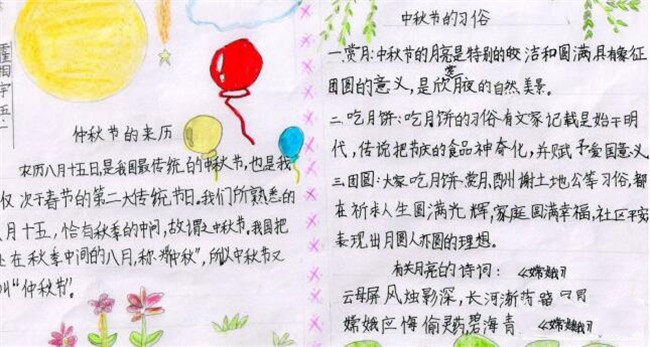 霍相宇 五·一
仲秋节的来历
农历八月十五日,是我国最传统的中秋节,也是我
仅次于春节的第二大传统节日。我们所熟悉的
八月十五,恰在秋季的中间,故谓之中秋节。我国把
处在秋季中间的八月,称"仲秋",所以中秋节又
叫"仲秋节"。
中秋节的习俗
一.赏月:中秋节的月亮是特别的皎洁和圆满具有象征
团圆的意义,是欣赏月夜的自然美景。
二.吃月饼:吃月饼的习俗有文家记载是始于明
代,传说把节庆的食品神奇化,并赋予爱国意义
三.团圆:大家吃月饼、赏月、酬谢土地公等习俗,都
在祈求人生圆满光辉,家庭圆满幸福,社区平安
表现出月圆人亦圆的理想。
有关月亮的诗词: 《嫦娥》
云母屏风烛影深,长河渐落
嫦娥应悔偷灵药,碧海青 《嫦娥》